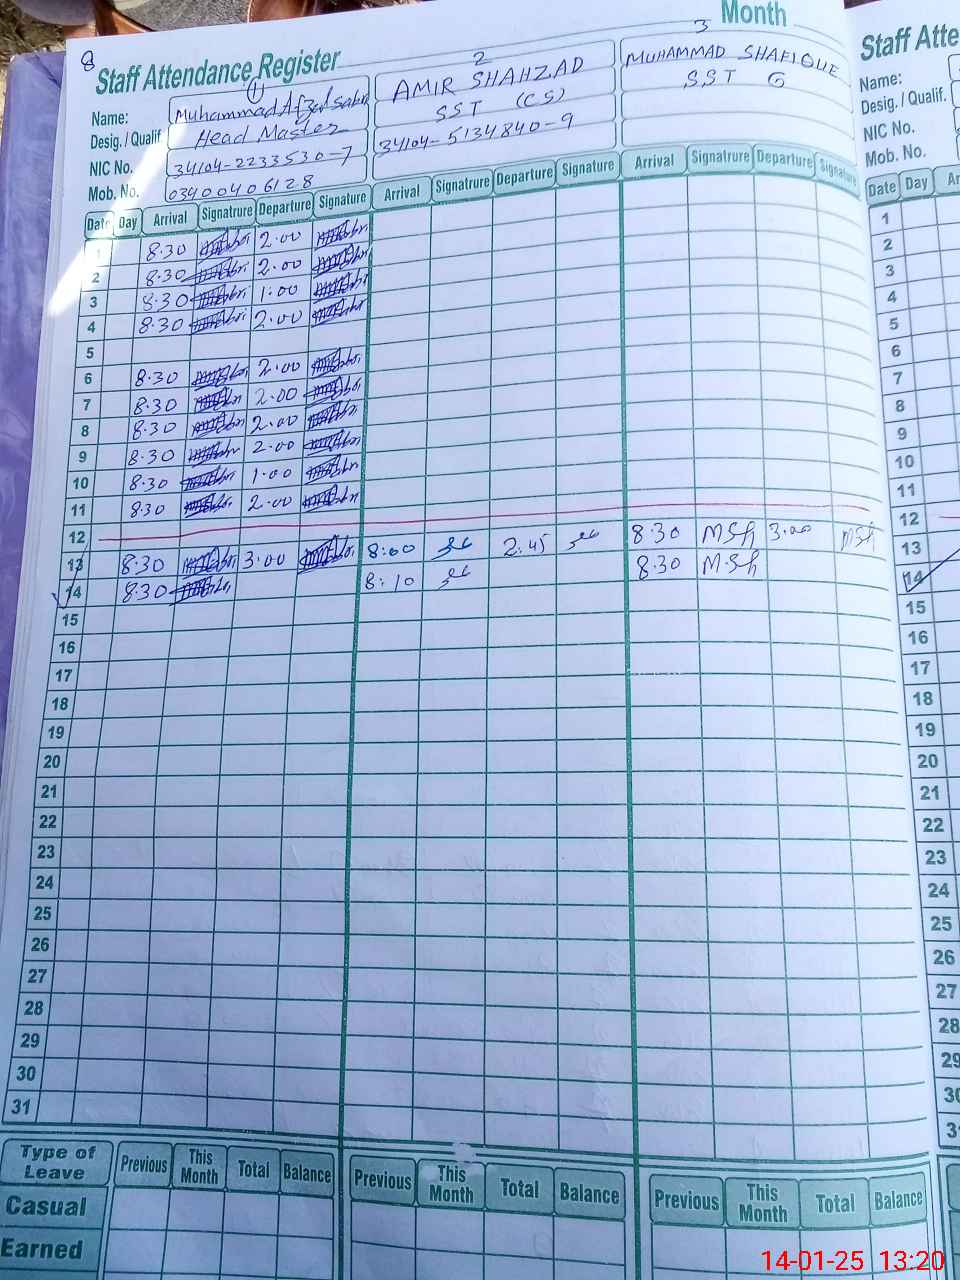 8
Staff Attendance Register
Month
Staff Atte
1 2 3
Name: Muhammad Afzal Sabri AMIR SHAHZAD MUHAMMAD SHAFIQUE Name:
Desig. / Qualif. Head Master SST (CS) SST G Desig. / Qualif.
NIC No. 34104-2233530-7 34104-5134840-9 NIC No.
Mob. No. 03400406128 Mob. No.
Date Day Arrival Signatrure Departure Signature Arrival Signatrure Departure Signature Arrival Signatrure Departure Signature Date Day Ar
1 8.30 2.00 1
2 8.30 2.00 2
3 8.30 1.00 3
4 8.30 2.00 4
5 5
6 8.30 2.00 6
7 8.30 2.00 7
8 8.30 2.00 8
9 8.30 2.00 9
10 8.30 1.00 10
11 8.30 2.00 11
12 12
13 8.30 3.00 8:00 2:45 8.30 M.Sh 3.00 M.Sh 13
14 8.30 8:10 8.30 M.Sh 14
15 15
16 16
17 17
18 18
19 19
20 20
21 21
22 22
23 23
24 24
25 25
26 26
27 27
28 28
29 29
30 30
31 3
Type of Leave Previous This Month Total Balance Previous This Month Total Balance Previous This Month Total Balance
Casual
Earned
14-01-25 13:20